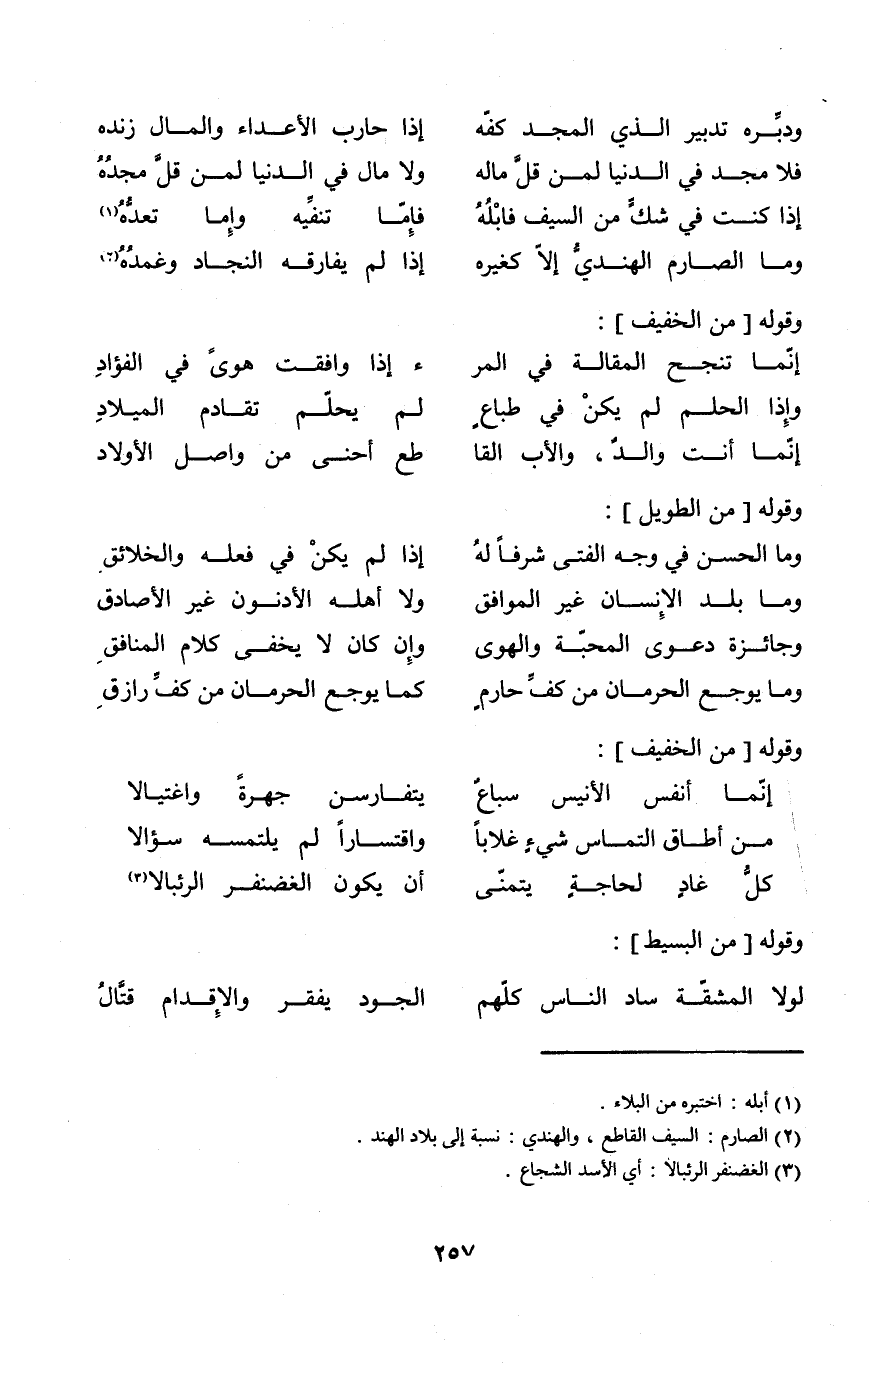 ودبِّره تدبير الذي المجد كفّه إذا حارب الأعداء والمال زنده
فلا مجد في الدنيا لمن قلَّ ماله ولا مال في الدنيا لمن قلَّ مجدُهُ
إذا كنت في شكٍّ من السيف فابْلُهُ فإمّا تنفِّيه وإما تعدُّهُ(١)
وما الصارم الهنديُّ إلاّ كغيره إذا لم يفارقه النجاد وغمدُهُ(٢)
وقوله [ من الخفيف ] :
إنّما تنجح المقالة في المر ء إذا وافقت هوىً في الفؤادِ
وإذا الحلم لم يكنْ في طباعٍ لم يحلّم تقادم الميلادِ
إنّما أنت والدٌ ، والأب القا طع أحنى من واصل الأولاد
وقوله [ من الطويل ] :
وما الحسن في وجه الفتى شرفاً لهُ إذا لم يكنْ في فعله والخلائقِ
وما بلد الإنسان غير الموافق ولا أهله الأدنون غير الأصادق
وجائزة دعوى المحبّة والهوى وإن كان لا يخفى كلام المنافقِ
وما يوجع الحرمان من كفِّ حارمٍ كما يوجع الحرمان من كفِّ رازقِ
وقوله [ من الخفيف ] :
إنّما أنفس الأنيس سباعٌ يتفارسن جهرةً واغتيالا
من أطاق التماس شيءٍ غلاباً واقتساراً لم يلتمسه سؤالا
كلُّ غادٍ لحاجةٍ يتمنّى أن يكون الغضنفر الرئبالا(٣)
وقوله [ من البسيط ] :
لولا المشقّة ساد الناس كلّهم الجود يفقر والإقدام قتَّالُ
(١) أبله : اختبره من البلاء .
(٢) الصارم : السيف القاطع ، والهندي : نسبة إلى بلاد الهند .
(٣) الغضنفر الرئبالا : أي الأسد الشجاع .
٢٥٧